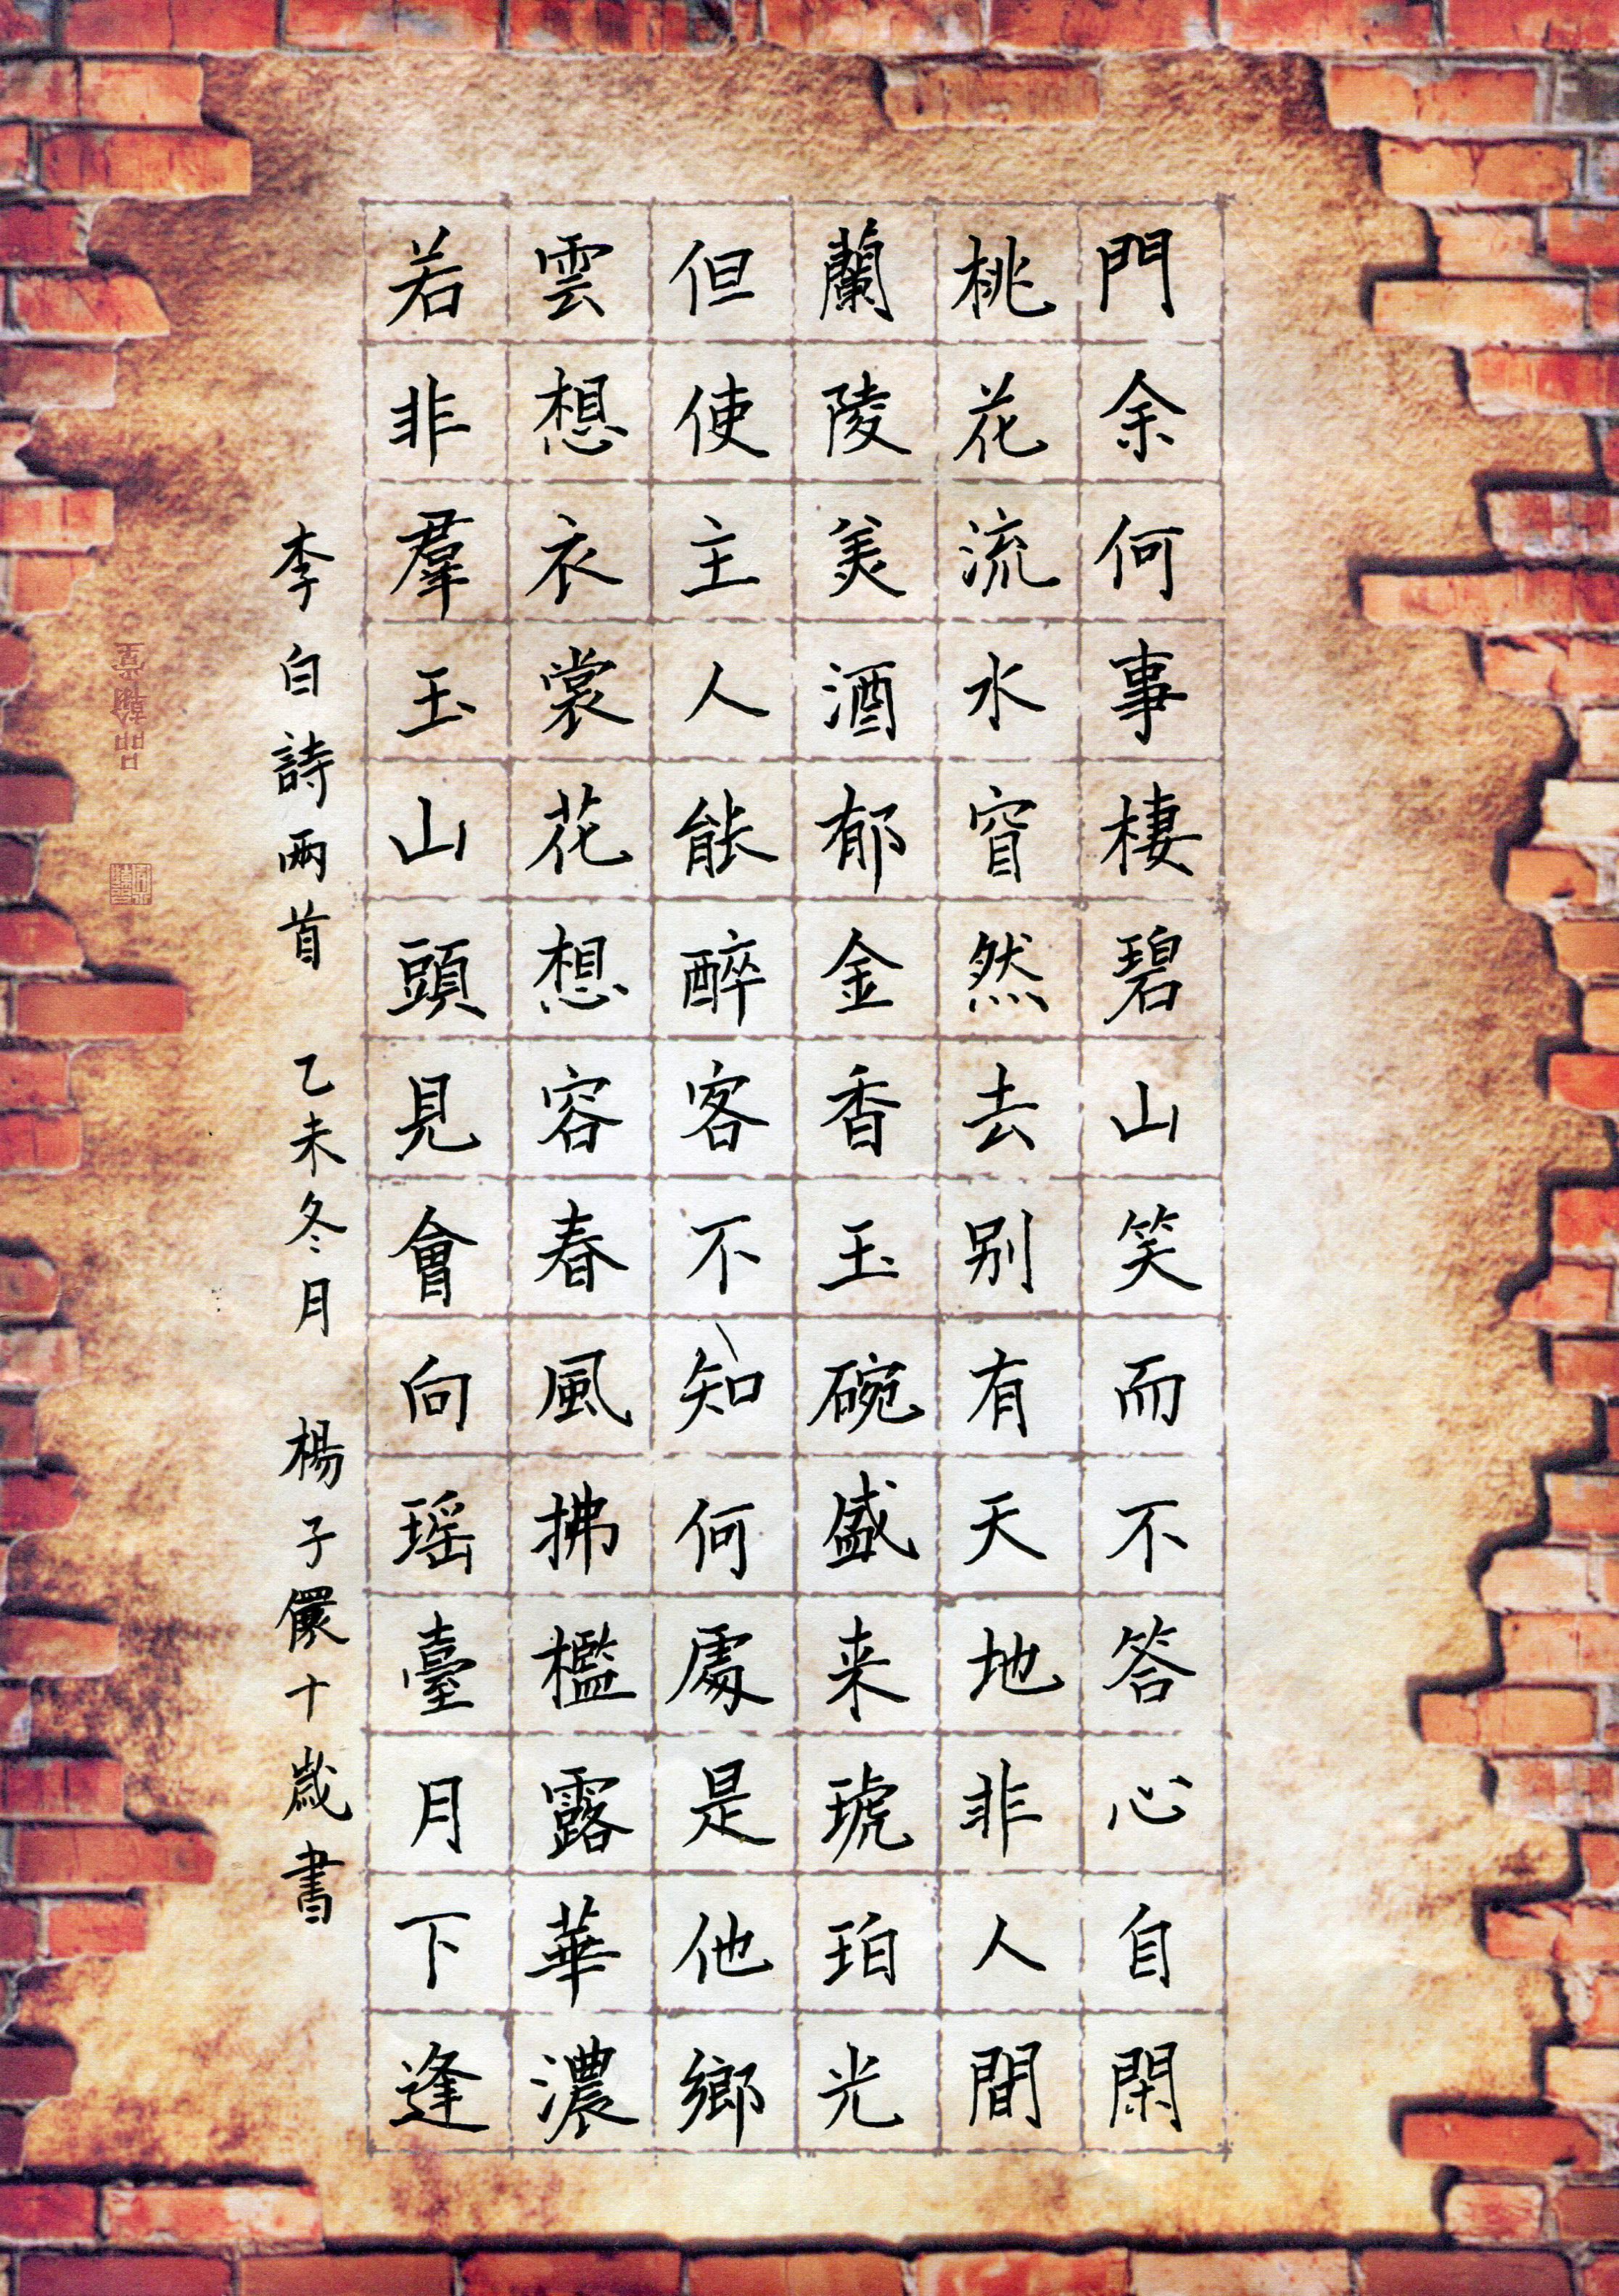 門余何事棲碧山笑而不答心自閑
桃花流水窅然去別有天地非人間
蘭陵美酒郁金香玉碗盛来琥珀光
但使主人能醉客不知何處是他鄉
雲想衣裳花想容春風拂檻露華濃
若非羣玉山頭見會向瑶臺月下逢
李白詩兩首 乙未冬月 楊子儼十歲書